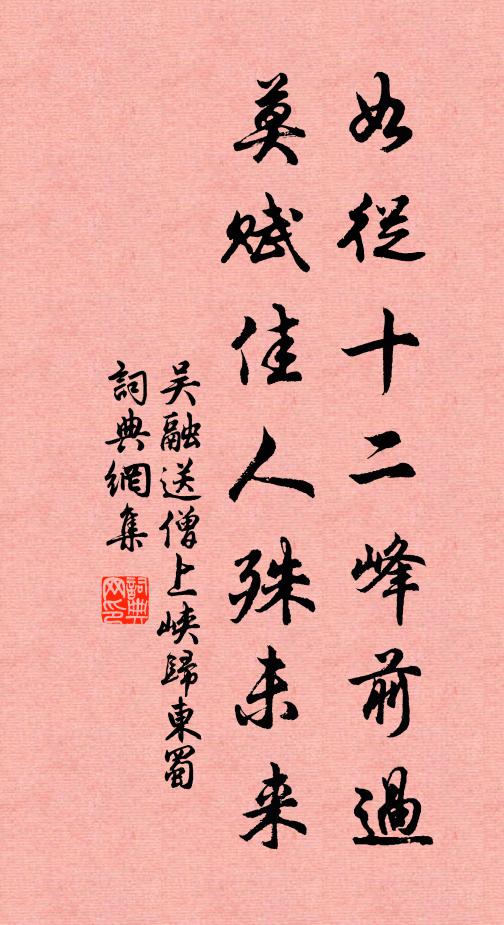 如從十二峰前過
莫賦佳人殊未来
吴融送僧上峽歸東蜀
詞典網集
詞典網印